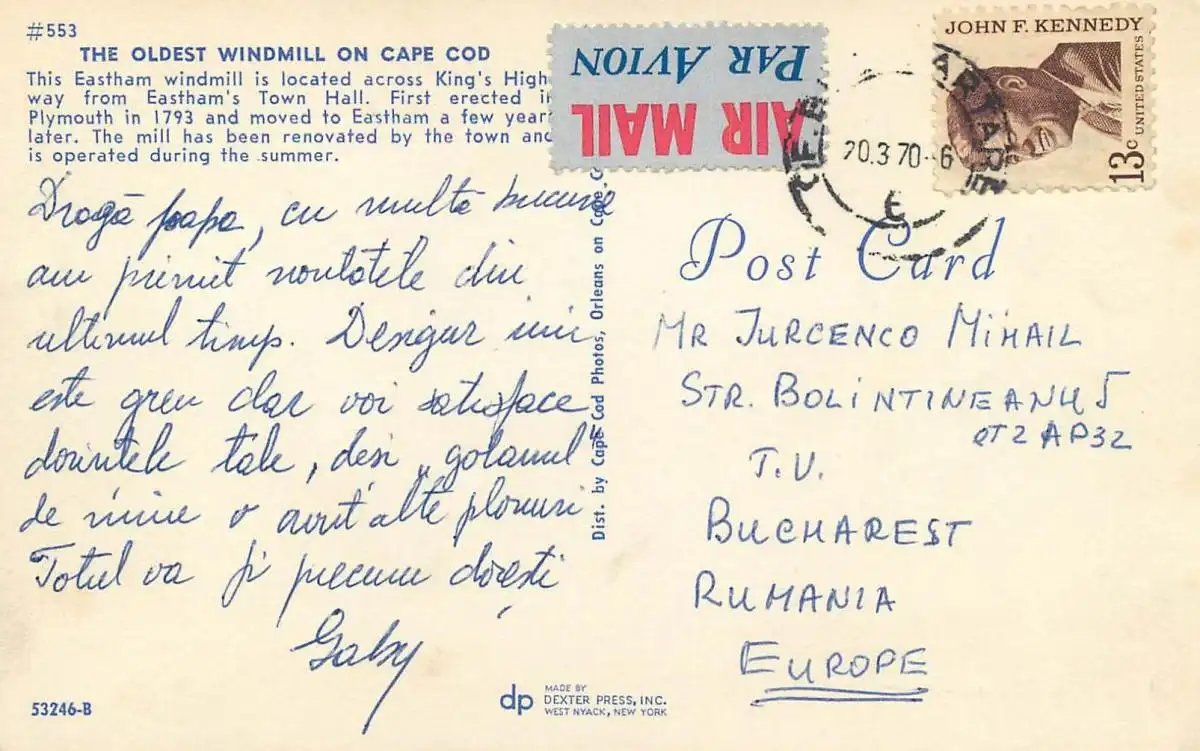 #553
THE OLDEST WINDMILL ON CAPE COD
This Eastham windmill is located across King's High-
way from Eastham's Town Hall. First erected in
Plymouth in 1793 and moved to Eastham a few years
later. The mill has been renovated by the town and
is operated during the summer.
PAR AVION
AIR MAIL
20.3.70-6
JOHN F. KENNEDY
UNITED STATES
13c
Dragă papa, cu multă bucurie
am primit noutatele din
ultimul timp. Desigur imi
este greu dar voi satisface
dorintele tale, desi „golanul"
de mine o avut alte planuri
Totul va fi precum dorești
Gaby
Dist. by Cape Cod Photos, Orleans on Cape
Post Card
MR JURCENCO MIHAIL
STR. BOLINTINEANU 5
ET 2 AP 32
T.V.
BUCHAREST
RUMANIA
EUROPE
53246-B
dp
MADE BY
DEXTER PRESS, INC.
WEST NYACK, NEW YORK